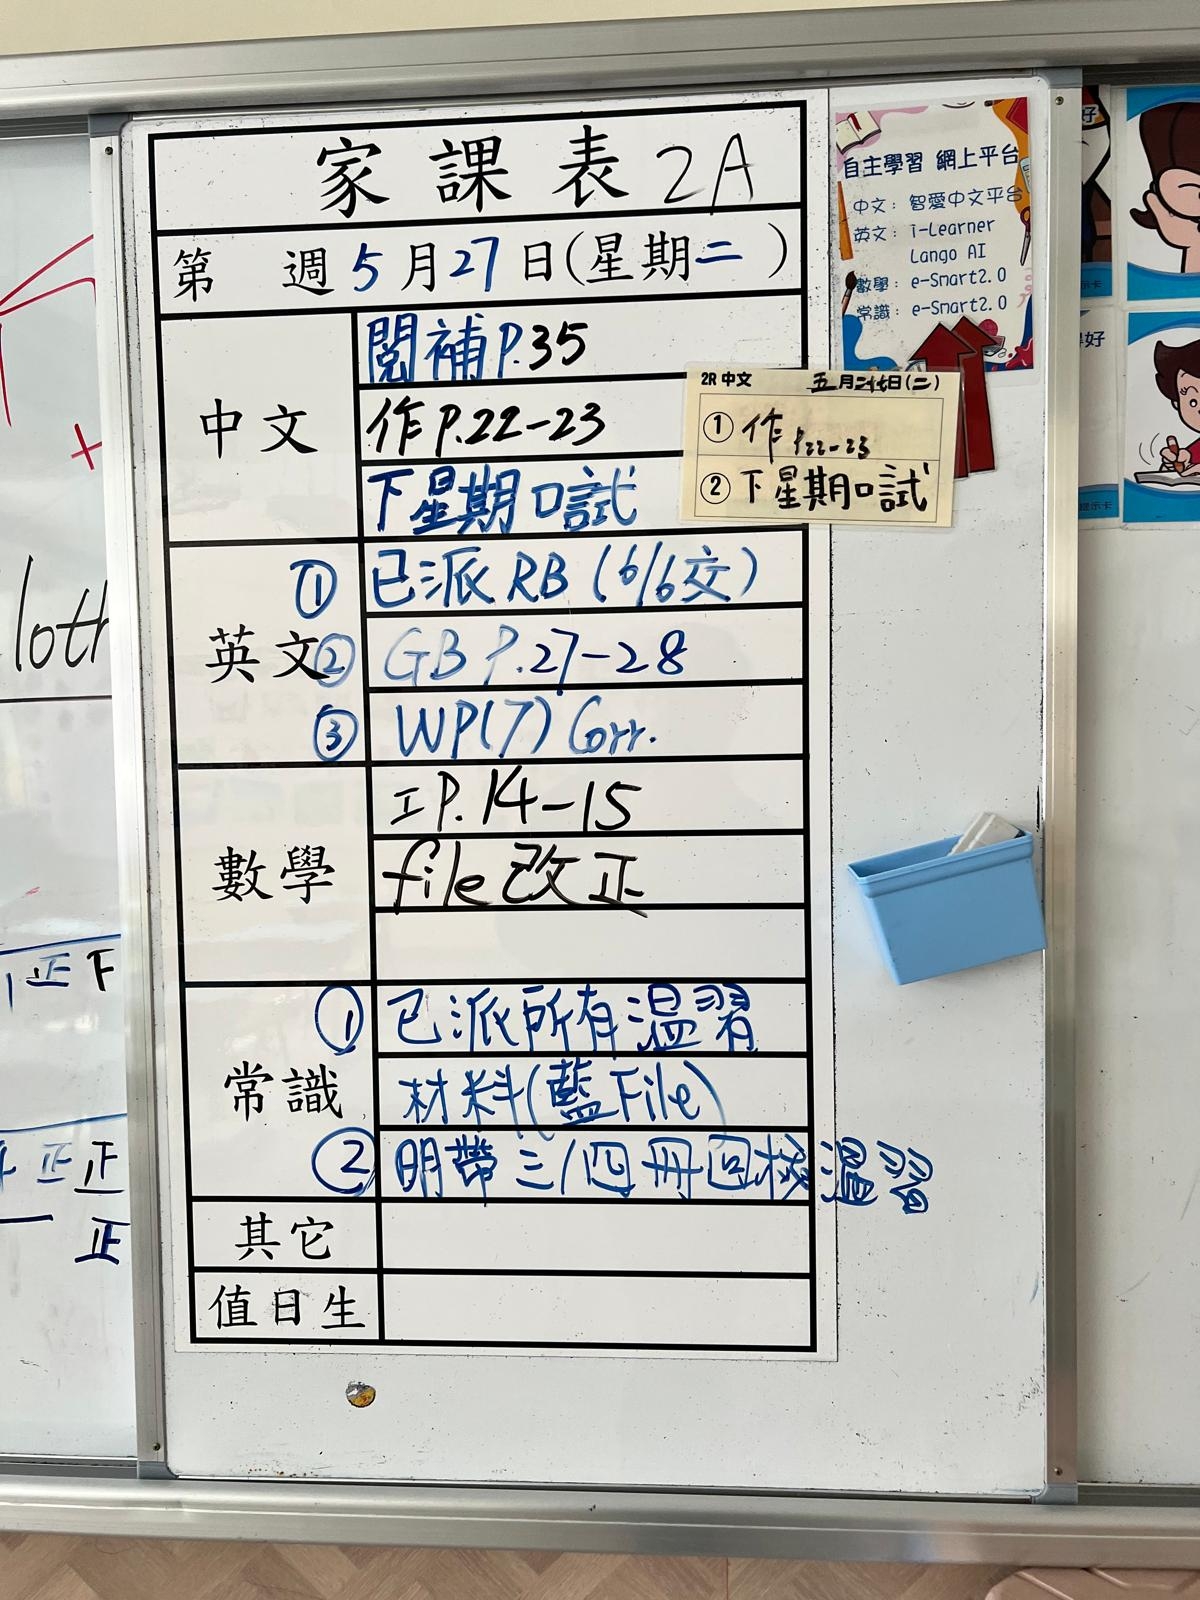 家課表 2A
第 週 5月27日(星期二)
中文
閱補 P.35
作 P.22-23
下星期口試
英文
① 已派 RB (6/6交)
② GB P.27-28
③ WP(7) Corr.
數學
工P.14-15
file 改正
常識
① 已派所有溫習
材料(藍File)
② 明帶三/四冊回校溫習
其它
值日生
2R 中文
① 作 P.22-23
② 下星期口試
自主學習 網上平台
中文：智愛中文平台
英文：i-Learner
Lango AI
數學：e-Smart2.0
常識：e-Smart2.0
loth
正下
正正
正
好
示卡
好
提示卡